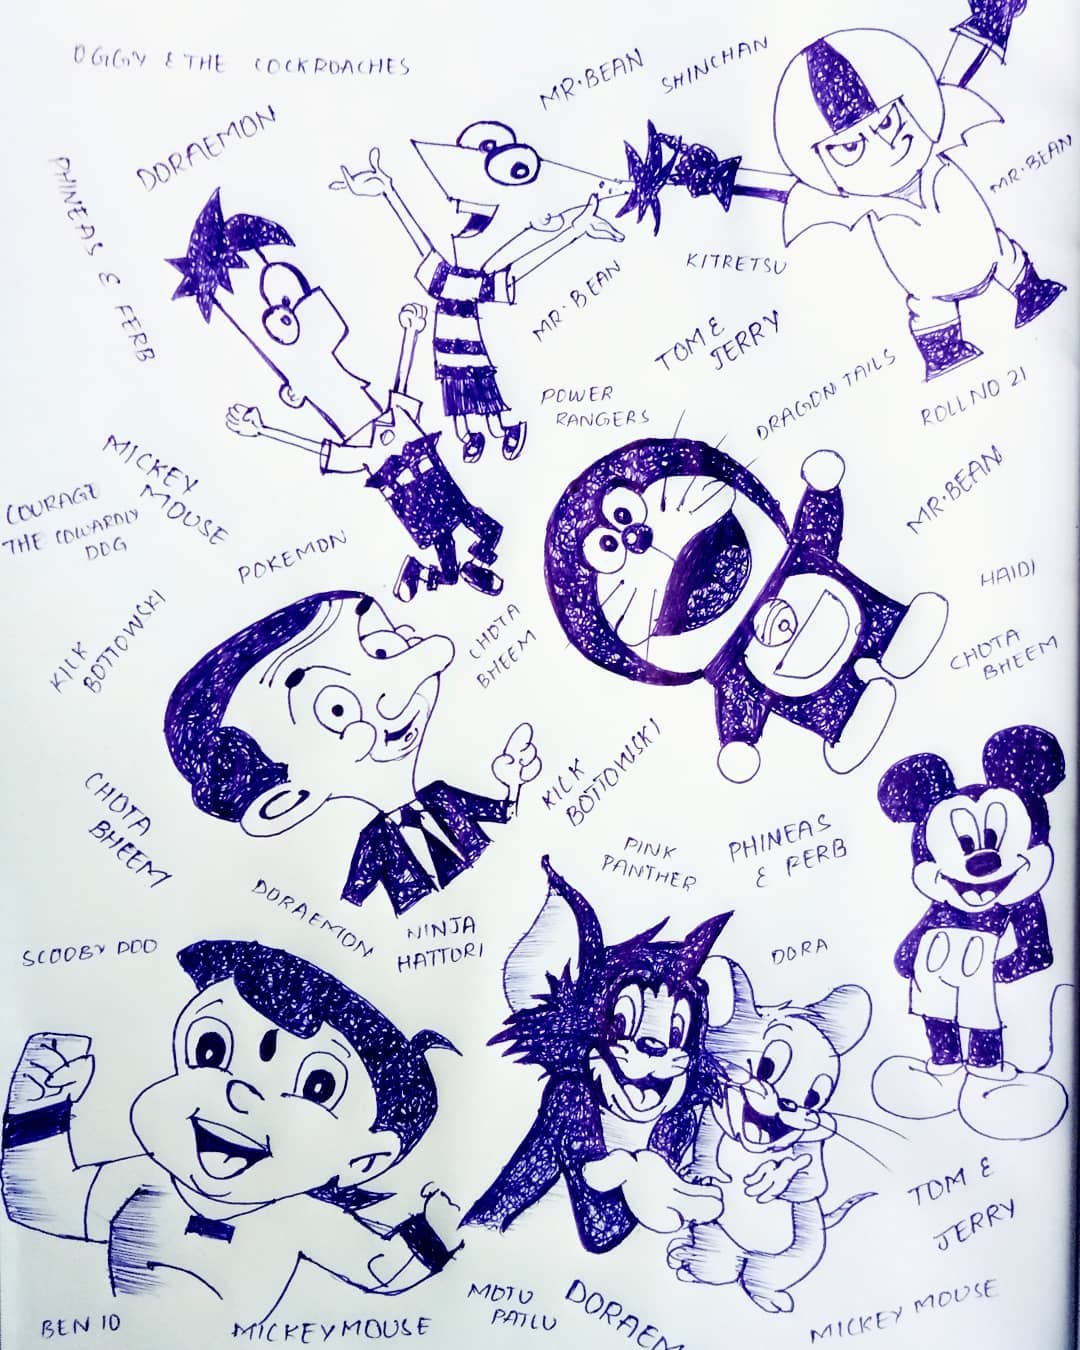 OGGY & THE COCKROACHES
MR.BEAN
SHINCHAN
DORAEMON
MR.BEAN
PHINEAS & FERB
KITRETSU
MR.BEAN
TOM &
JERRY
POWER
RANGERS
DRAGON TAILS
ROLL NO 21
MICKEY
MOUSE
COURAGE
THE COWARDLY
DOG
MR.BEAN
POKEMON
HAIDI
KICK
BOTTOWSKI
CHOTA
BHEEM
CHOTA
BHEEM
KICK
BOTTOWSKI
CHOTA
BHEEM
PINK
PANTHER
PHINEAS
& FERB
DORAEMON
NINJA
HATTORI
SCOOBY DOO
DORA
TOM &
JERRY
MOTU
PATLU
DORAEM
MICKEY MOUSE
BEN 10
MICKEY MOUSE